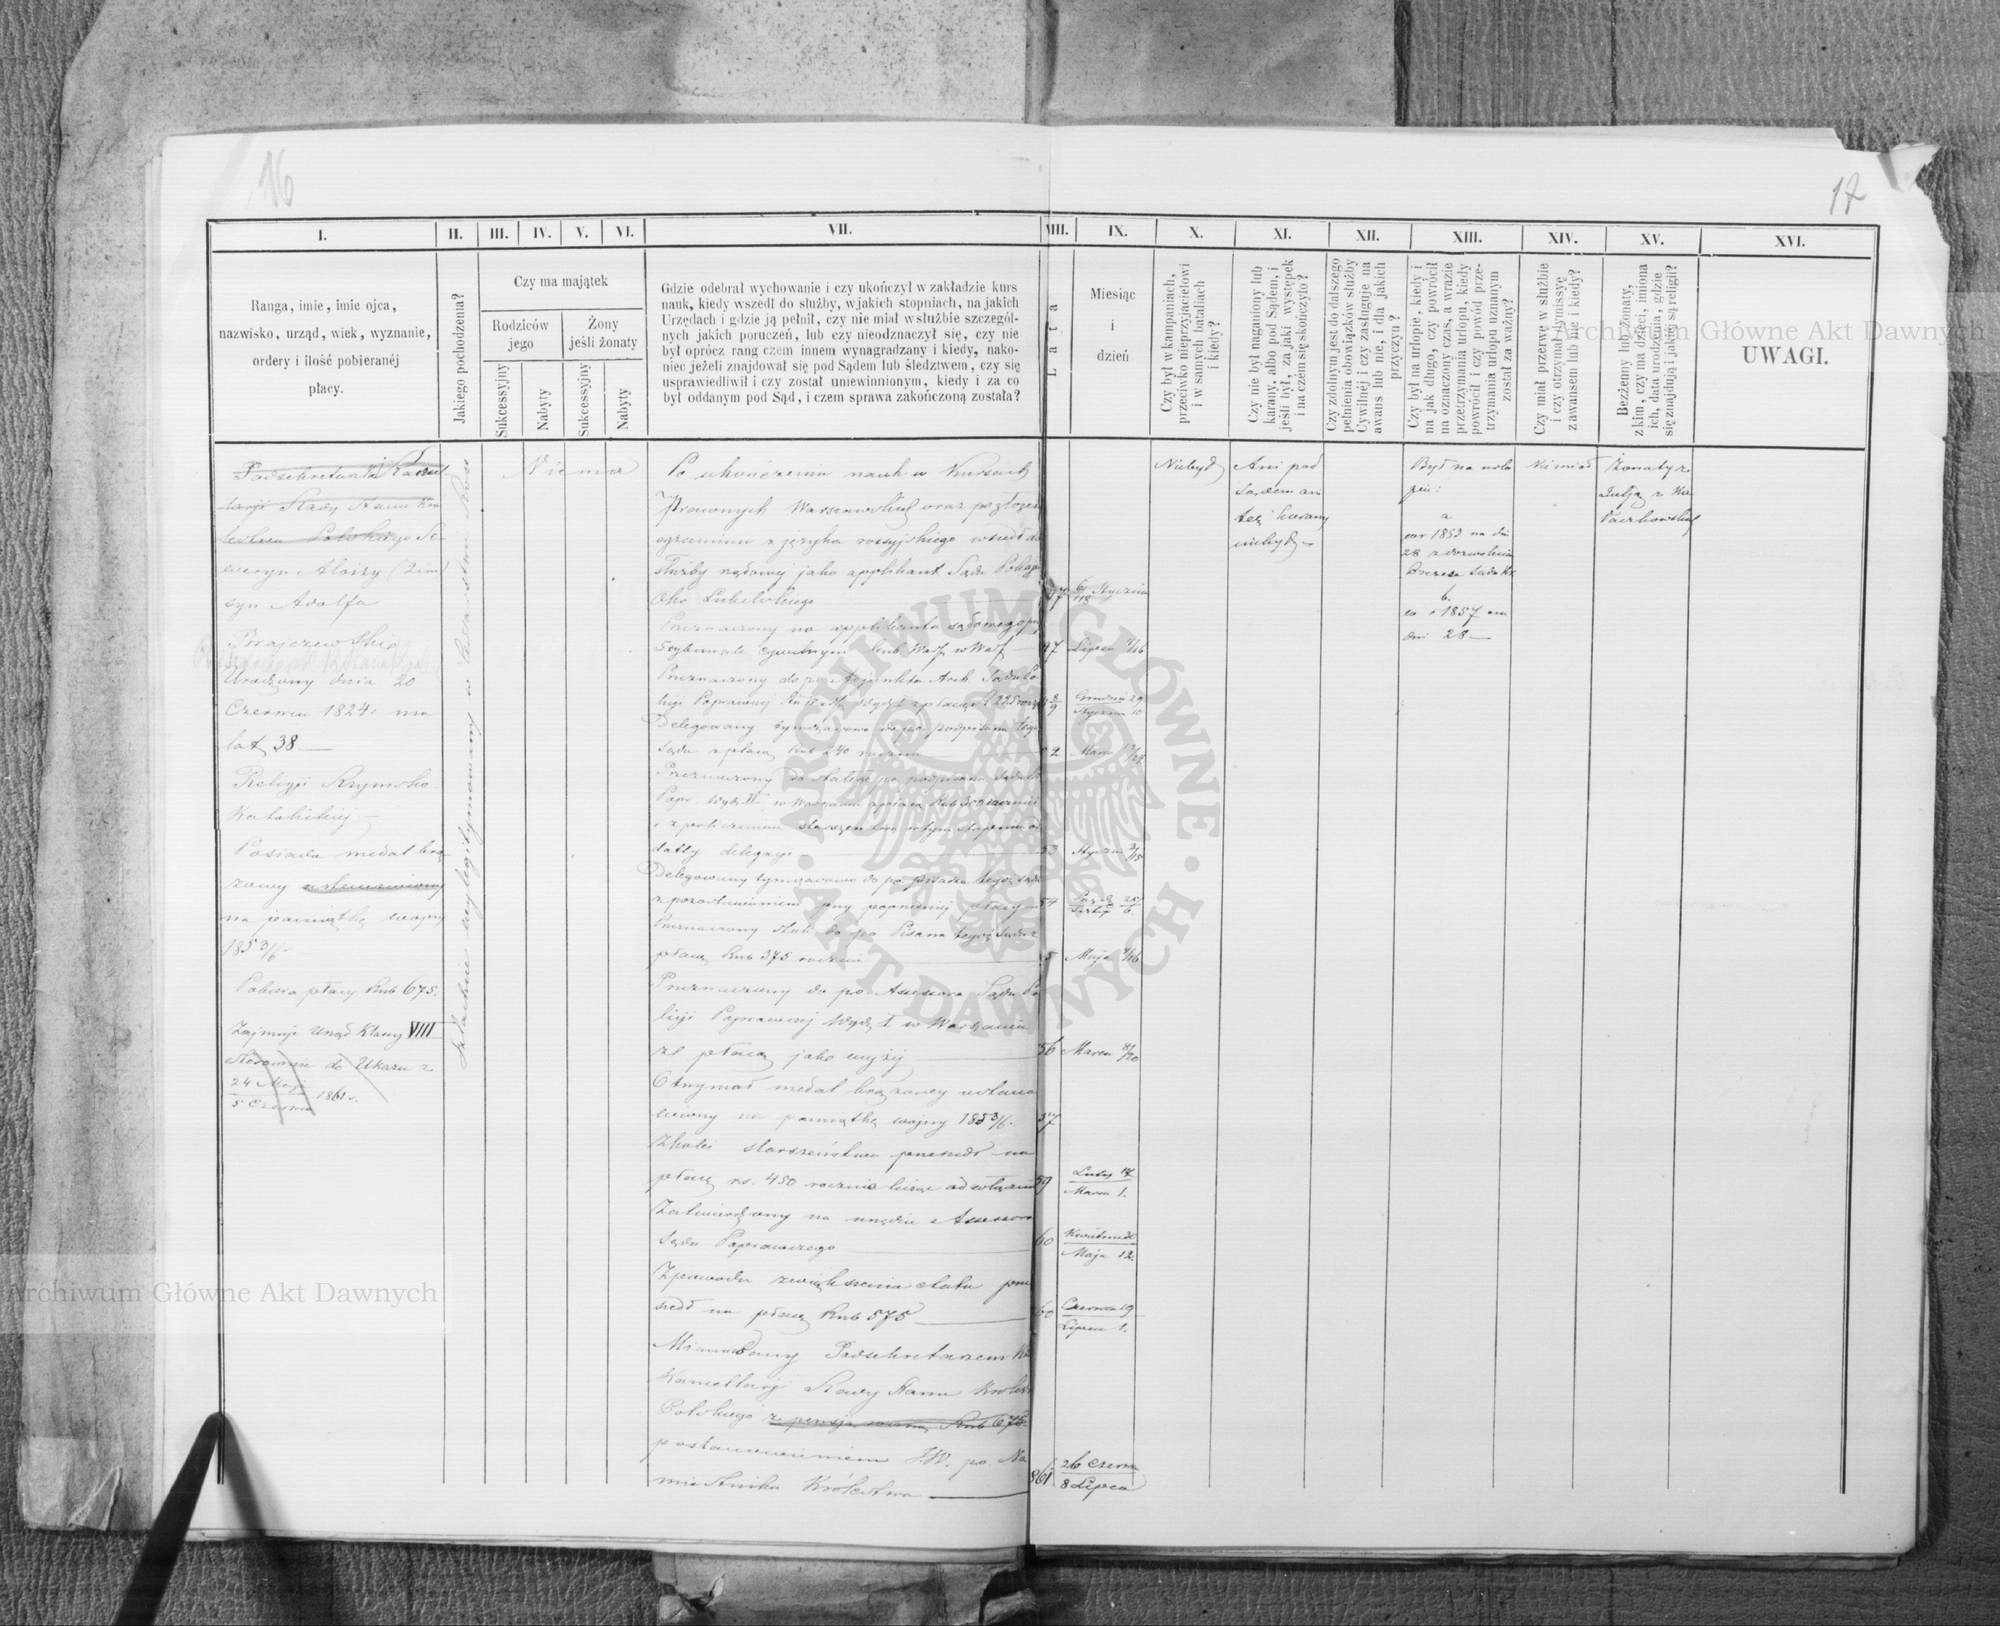 16
17
I.
II.
III.
IV.
V.
VI.
VII.
VIII.
IX.
X.
XI.
XII.
XIII.
XIV.
XV.
XVI.
Ranga, imie, imie ojca,
nazwisko, urząd, wiek, wyznanie,
ordery i ilość pobieranéj
płacy.
Jakiego pochodzenia?
Czy ma majątek
Rodziców
jego
Żony
jeśli żonaty
Sukcessyjny
Nabyty
Sukcessyjny
Nabyty
Gdzie odebrał wychowanie i czy ukończył w zakładzie kurs
nauk, kiedy wszedł do służby, w jakich stopniach, na jakich
Urzędach i gdzie ją pełnił, czy nie miał w służbie szczegól-
nych jakich poruczeń, lub czy nieodznaczył się, czy nie
był oprócz rang czem innem wynagradzany i kiedy, nako-
niec jeżeli znajdował się pod Sądem lub śledztwem, czy się
usprawiedliwił i czy został uniewinnionym, kiedy i za co
był oddanym pod Sąd, i czem sprawa zakończoną została?
Lata
Miesiąc
i
dzień
Czy był w kampaniach,
przeciwko nieprzyjacielowi
i w samych bataliach
i kiedy?
Czy nie był naganiony lub
karany, albo pod Sądem, i
jeśli był, za jaki występek
i na czém się skończyło?
Czy zdolnym jest do dalszego
pełnienia obowiązków służby
Cywilnéj i czy zasługuje na
awans lub nie, i dla jakich
przyczyn?
Czy był na urlopie, kiedy i
na jak długo, czy powrócił
na oznaczony czas, a w razie
przetrzymania urlopu, kiedy
powrócił i czy powód prze-
trzymania urlopu uznanym
został za ważny?
Czy miał przerwę w służbie
i czy otrzymał dymissyę
z awansem lub nie i kiedy?
Bezżenny lub żonaty,
z kim, czy ma dzieci, imiona
ich, data urodzenia, gdzie
się znajdują i jakiéj są religii?
UWAGI.
Podsekretarz Kancel-
laryi Rady Stanu Kró
lestwa Polskiego Se-
weryn Aloizy (2 im)
syn Adolfa
Brajczewski
Urodzony dnia 20
Czerwca 1824 r. ma
lat 38 —
Religii Rzymsko
Katolickiej —
Posiada medal brą-
zowy ustanowiony
na pamiątkę wojny
1853/6 r.
Pobiera płacy Rub 675.
Zajmuje Urząd Klassy VIII
Stosownie do Ukazu z
24 Maja
5 Czerwca 1861 r.
Szlachcic wylegitymowany w Cesarstwie
Niema
Po ukończeniu nauk w Kursach
Prawnych Warszawskich oraz po złożeniu
egzaminu z języka rossyjskiego wszedł do
służby rządowej jako applikant Sądu Policyi
Okr Lubelskiego —
47 6/18 Stycznia
Przeznaczony na applikanta sądowego przy
Trybunale Cywilnym Gub. Warsz w Warsz —
47 Lipca 4/16
Przeznaczony do po Adjunkta Arch Sądu Po
licyi Poprawczej
8/9 Grudnia 29
Stycznia 10
Delegowany tymczasowo do po podpisarza tego
Sądu z płacą Rub 240 rocznie —
52
Przeznaczony do stałego po podpisarza Sądu
i z policzeniem starszeństwa w tym stopniu od
daty delegacyi —
53 Stycz 3/15
Delegowany tymczasowo do po pisarza tegoż Sądu
z pozostawieniem przy poprzedniej płacy —
54
Przeznaczony stale do po Pisarza tegoż Sądu z
płacą Rub 375 rocznie
5 Maja 4/16
Przeznaczony do po Assessora Sądu Po
licyi Poprawczej Wydz I w Warszawie
ze płacą jako wyżej —
56 Marca 8/20
Otrzymał medal brązowy ustano
wiony na pamiątkę wojny 1853/6 r.
57
Z kolei starszeństwa przeszedł na
płacę rs. 450 rocznie licząc od
59 Luty 17
Marca 1.
Zatwierdzony na urzędzie Assessora
Sądu Poprawczego —
60 Kwietnia 30
Maja 12
Z powodu zwiększenia etatu prze
szedł na płacę Rub 575 —
60 Czerwca 19
Lipca 1.
Mianowany Podsekretarzem
Kancellaryi Rady Stanu Królestwa
Polskiego z pensją roczną Rub 675
postanowieniem J.W. po Na
miestnika Królestwa —
861 26 Czerwca
8 Lipca
Niebył
Ani pod
Sądem ani
też karany
niebył —
Był na urlo
pie:
a
w r 1853 na dni
28 z dozwolenia
Prezesa Sądu
b.
w r 1857 na
dni 28 —
Nie miał
Żonaty z
Julją z
Paczkowskich
Archiwum Główne Akt Dawnych
Archiwum Główne Akt Dawnych
ARCHIWUM GŁÓWNE · AKT DAWNYCH ·